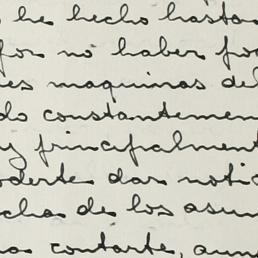 he hecho hasta
por no haber po
es maquinas de
do constantemen
y principalment
oderte dar notic
cha de los asun
contarte, aun